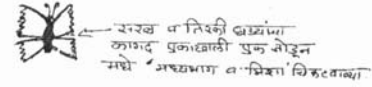 सरळ व तिरकी घड्यांचा
कागद एकाखाली एक जोडून
मधे मध्यभाग व मिशा चिकटवाव्या